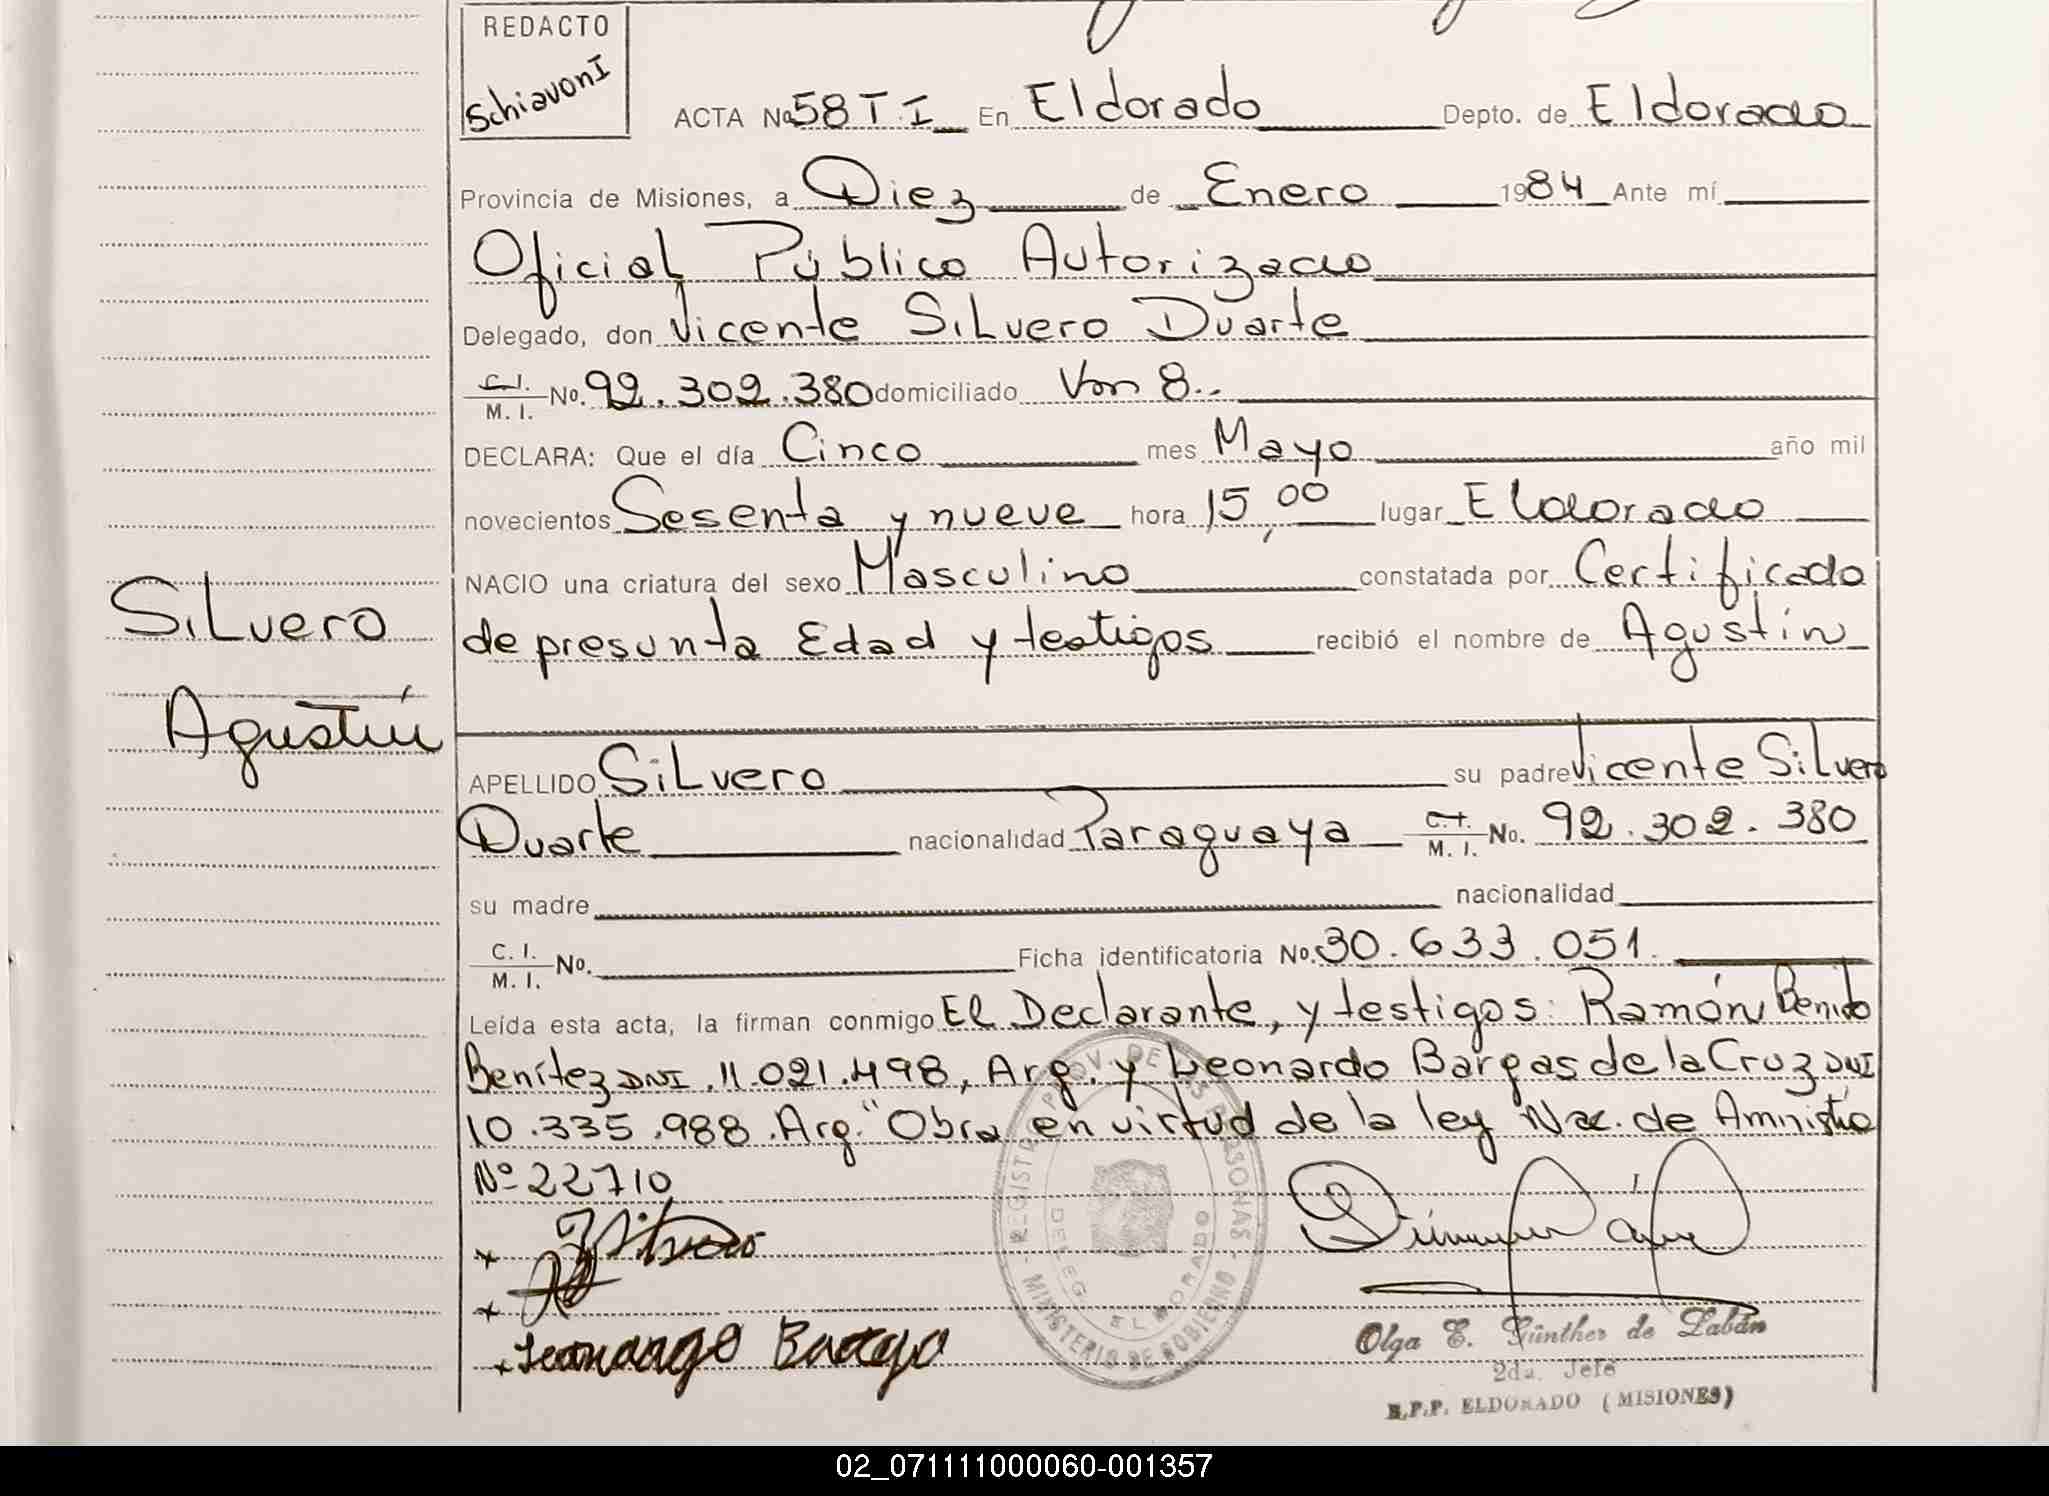 REDACTO
SchiavonI
ACTA No. 58 T. I. En Eldorado Depto. de Eldorado
Provincia de Misiones, a Diez de Enero 1984 Ante mí
Oficial Público Autorizado
Delegado, don Vicente Silvero Duarte
C. I. / M. I. No. 92.302.380 domiciliado Km 8..
DECLARA: Que el día Cinco mes Mayo año mil
novecientos Sesenta y nueve hora 15,00 lugar Eldorado
NACIO una criatura del sexo Masculino constatada por Certificado
de presunta Edad y testigos recibió el nombre de Agustín
Silvero
Agustín
APELLIDO Silvero su padre Vicente Silvero
Duarte nacionalidad Paraguaya C. I. / M. I. No. 92.302.380
su madre nacionalidad
C. I. / M. I. No. Ficha identificatoria No. 30.633.051.
Leída esta acta, la firman conmigo El Declarante, y testigos: Ramón Benito
Benítez DNI. 11.021.498, Arg. y Leonardo Bargas de la Cruz DNI
10.335.988. Arg." Obra en virtud de la ley Nac. de Amnistia
Nº 22710
x Silvero
x
x Bargas
REGISTRO PROV. DE LAS PERSONAS - MINISTERIO DE GOBIERNO -
DELEG. ELDORADO
Olga E. Günther de Labán
2da. Jefe
R.P.P. ELDORADO (MISIONES)
02_071111000060-001357